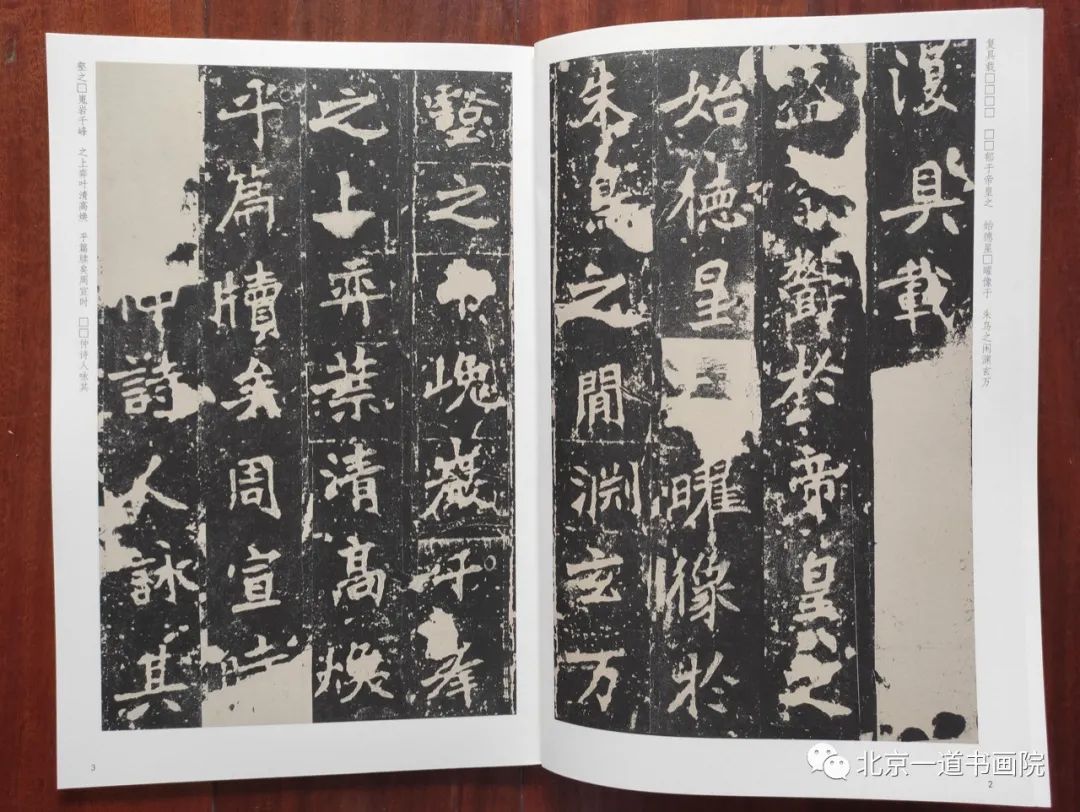 復具載
鬱於帝皇之
始德星曜像於
朱鳥之閒淵玄万
复具载□□□□ □□郁于帝皇之 始德星□曜像于 朱鸟之闲渊玄万
2
壑之嵬巖千峯
之上弈葉清高煥
乎篇牘矣周宣時
仲詩人詠其
壑之□嵬岩千峰 之上弈叶清高焕 乎篇牍矣周宣时 □□仲诗人咏其
3
北京一道书画院